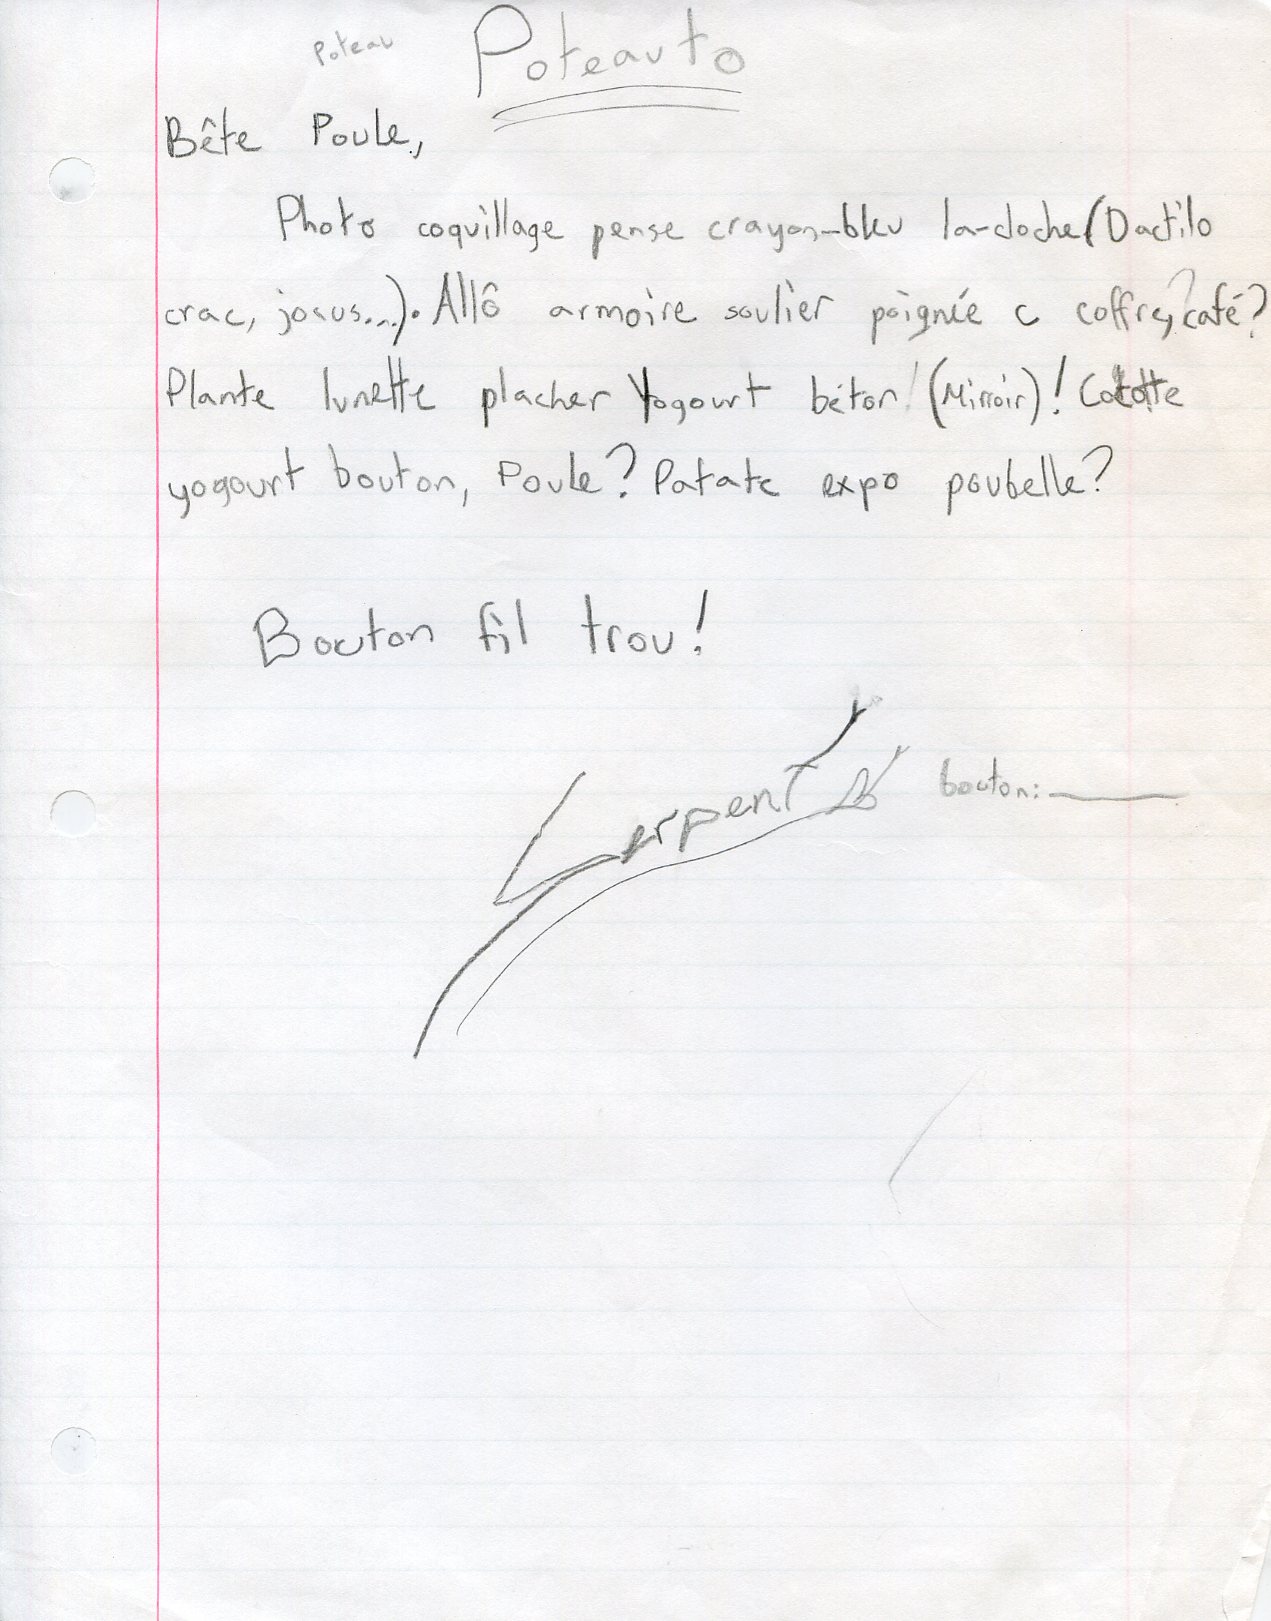 Poteau
Poteauto
Bête Poule,
Photo coquillage pense crayon-bleu la-cloche (Dactilo
crac, josus...). Allô armoire soulier poignée c coffre, café?
Plante lunette placher Yogourt béton! (Mirroir)! Cocotte
yogourt bouton, Poule? Patate expo poubelle?
Bouton fil trou!
Serpent
bouton: